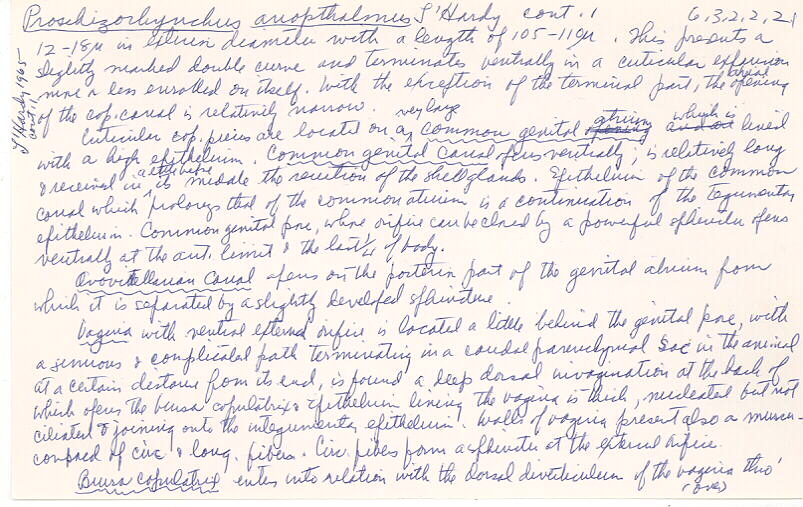 Proschizorhynchus anopthalmus L'Hardy cont. 1 6, 3, 2, 2, 2, 1
12-18µ in extern diameter with a length of 105-110µ. This presents a
slightly marked double curve and terminates ventrally in a cuticular expansion
more or less enrolled on itself. With the exception of the terminal part, the opening
of the cop. canal is relatively narrow.
L'Hardy 1965 cont. 1
Cuticular cop. pieces are located on a very large common genital atrium which is lined
with a high epithelium. Common genital canal opens ventrally; is relatively long
& received in its midale the secretion of the shell glands. Epithelium of the common
canal which prolongs that of the common atrium is a continuation of the tegumentary
epithelium. Common genital pore, whose orifice can be closed by a powerful sphincter opens
ventrally at the ant. limit of the last 1/4 of body.
Ovovitellarian Canal opens on the posterior part of the genital atrium from
which it is separated by a slightly developed sphincture.
Vagina with ventral external orifice is located a little behind the genital pore, with
a sinuous & complicated path terminating in a caudal parenchymal sac in the animal
at a certain distance from its end, is found a deep dorsal invagination at the back of
which opens the bursa copulatrix. Epithelium lining the vagina is thick, nucleated but not
ciliated & joining onto the integumentary epithelium. Walls of vagina present also a muscu-
composed of circ. & long. fibers. Circ. fibes form a sphincter at the external orifice.
Bursa copulatrix enters into relation with the dorsal diverticulum of the vagina thro'
(over)